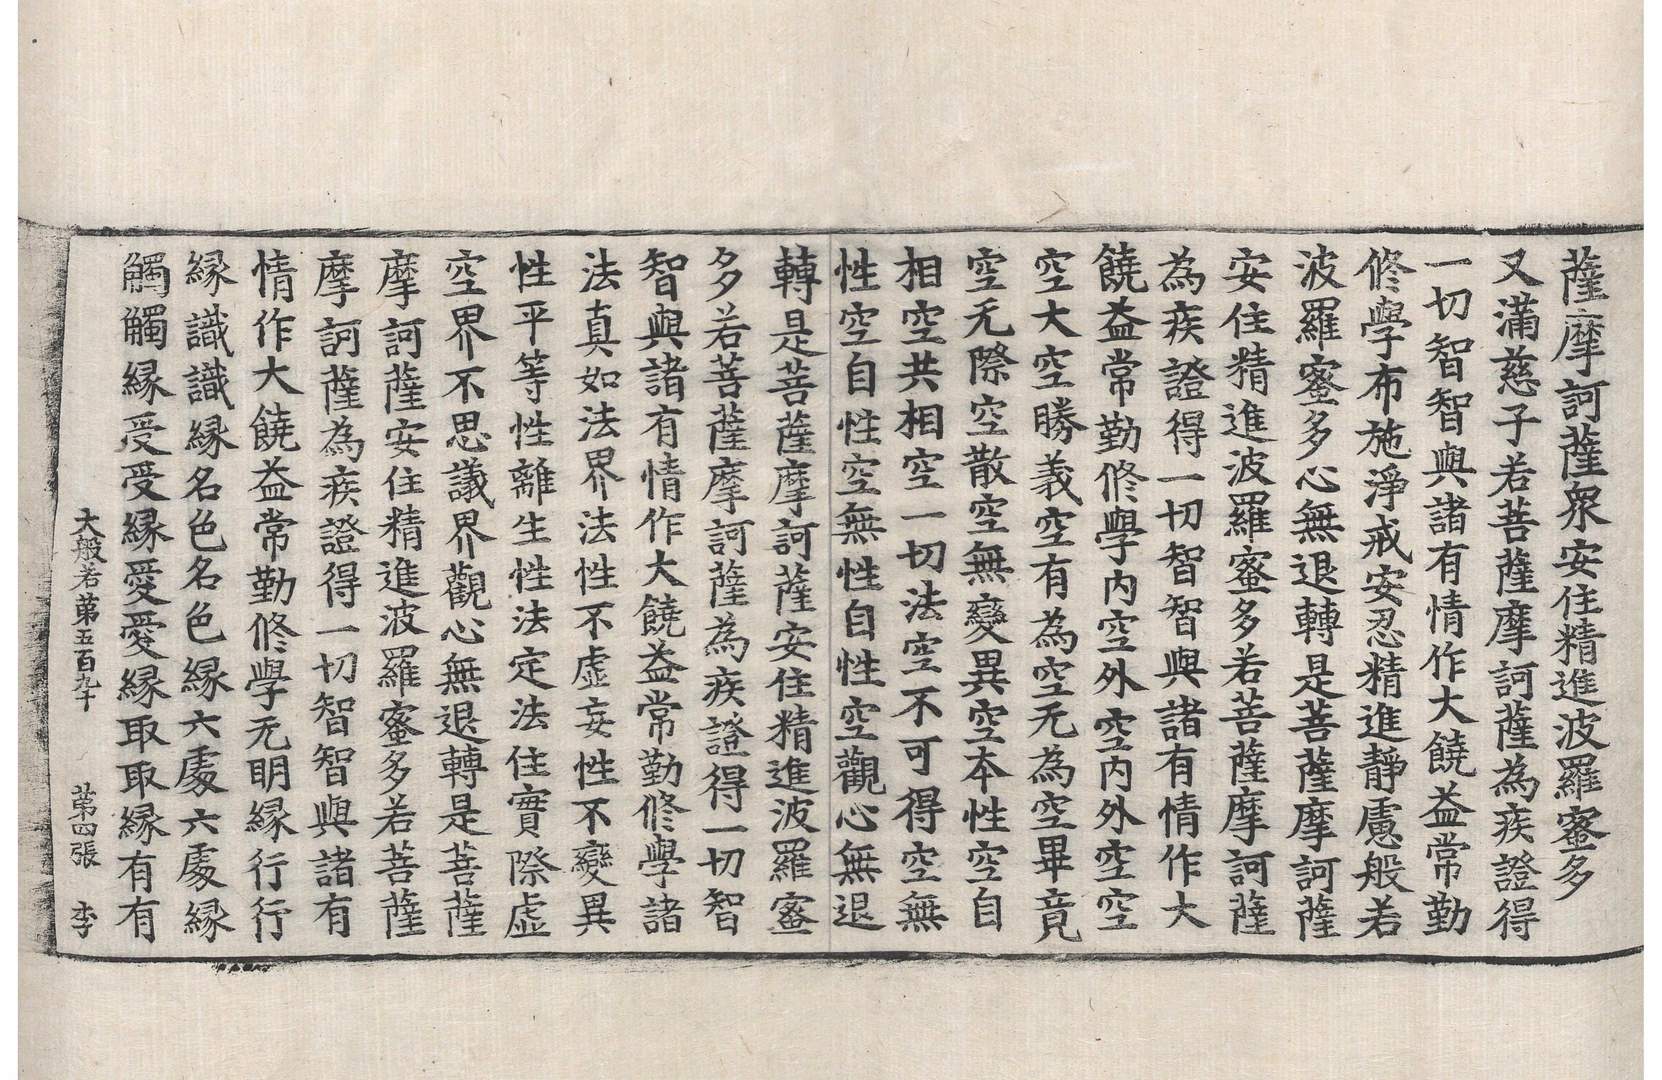 薩摩訶薩衆安住精進波羅蜜多
又滿慈子若菩薩摩訶薩為疾證得
一切智智與諸有情作大饒益常勤
修學布施淨戒安忍精進靜慮般若
波羅蜜多心無退轉是菩薩摩訶薩
安住精進波羅蜜多若菩薩摩訶薩
為疾證得一切智智與諸有情作大
饒益常勤修學內空外空內外空空
空大空勝義空有為空无為空畢竟
空无際空散空無變異空本性空自
相空共相空一切法空不可得空無
性空自性空無性自性空觀心無退
轉是菩薩摩訶薩安住精進波羅蜜
多若菩薩摩訶薩為疾證得一切智
智與諸有情作大饒益常勤修學諸
法真如法界法性不虛妄性不變異
性平等性離生性法定法住實際虛
空界不思議界觀心無退轉是菩薩
摩訶薩安住精進波羅蜜多若菩薩
摩訶薩為疾證得一切智智與諸有
情作大饒益常勤修學无明緣行行
緣識識緣名色名色緣六處六處緣
觸觸緣受受緣愛愛緣取取緣有有
大般若第五百九十 第四張 李